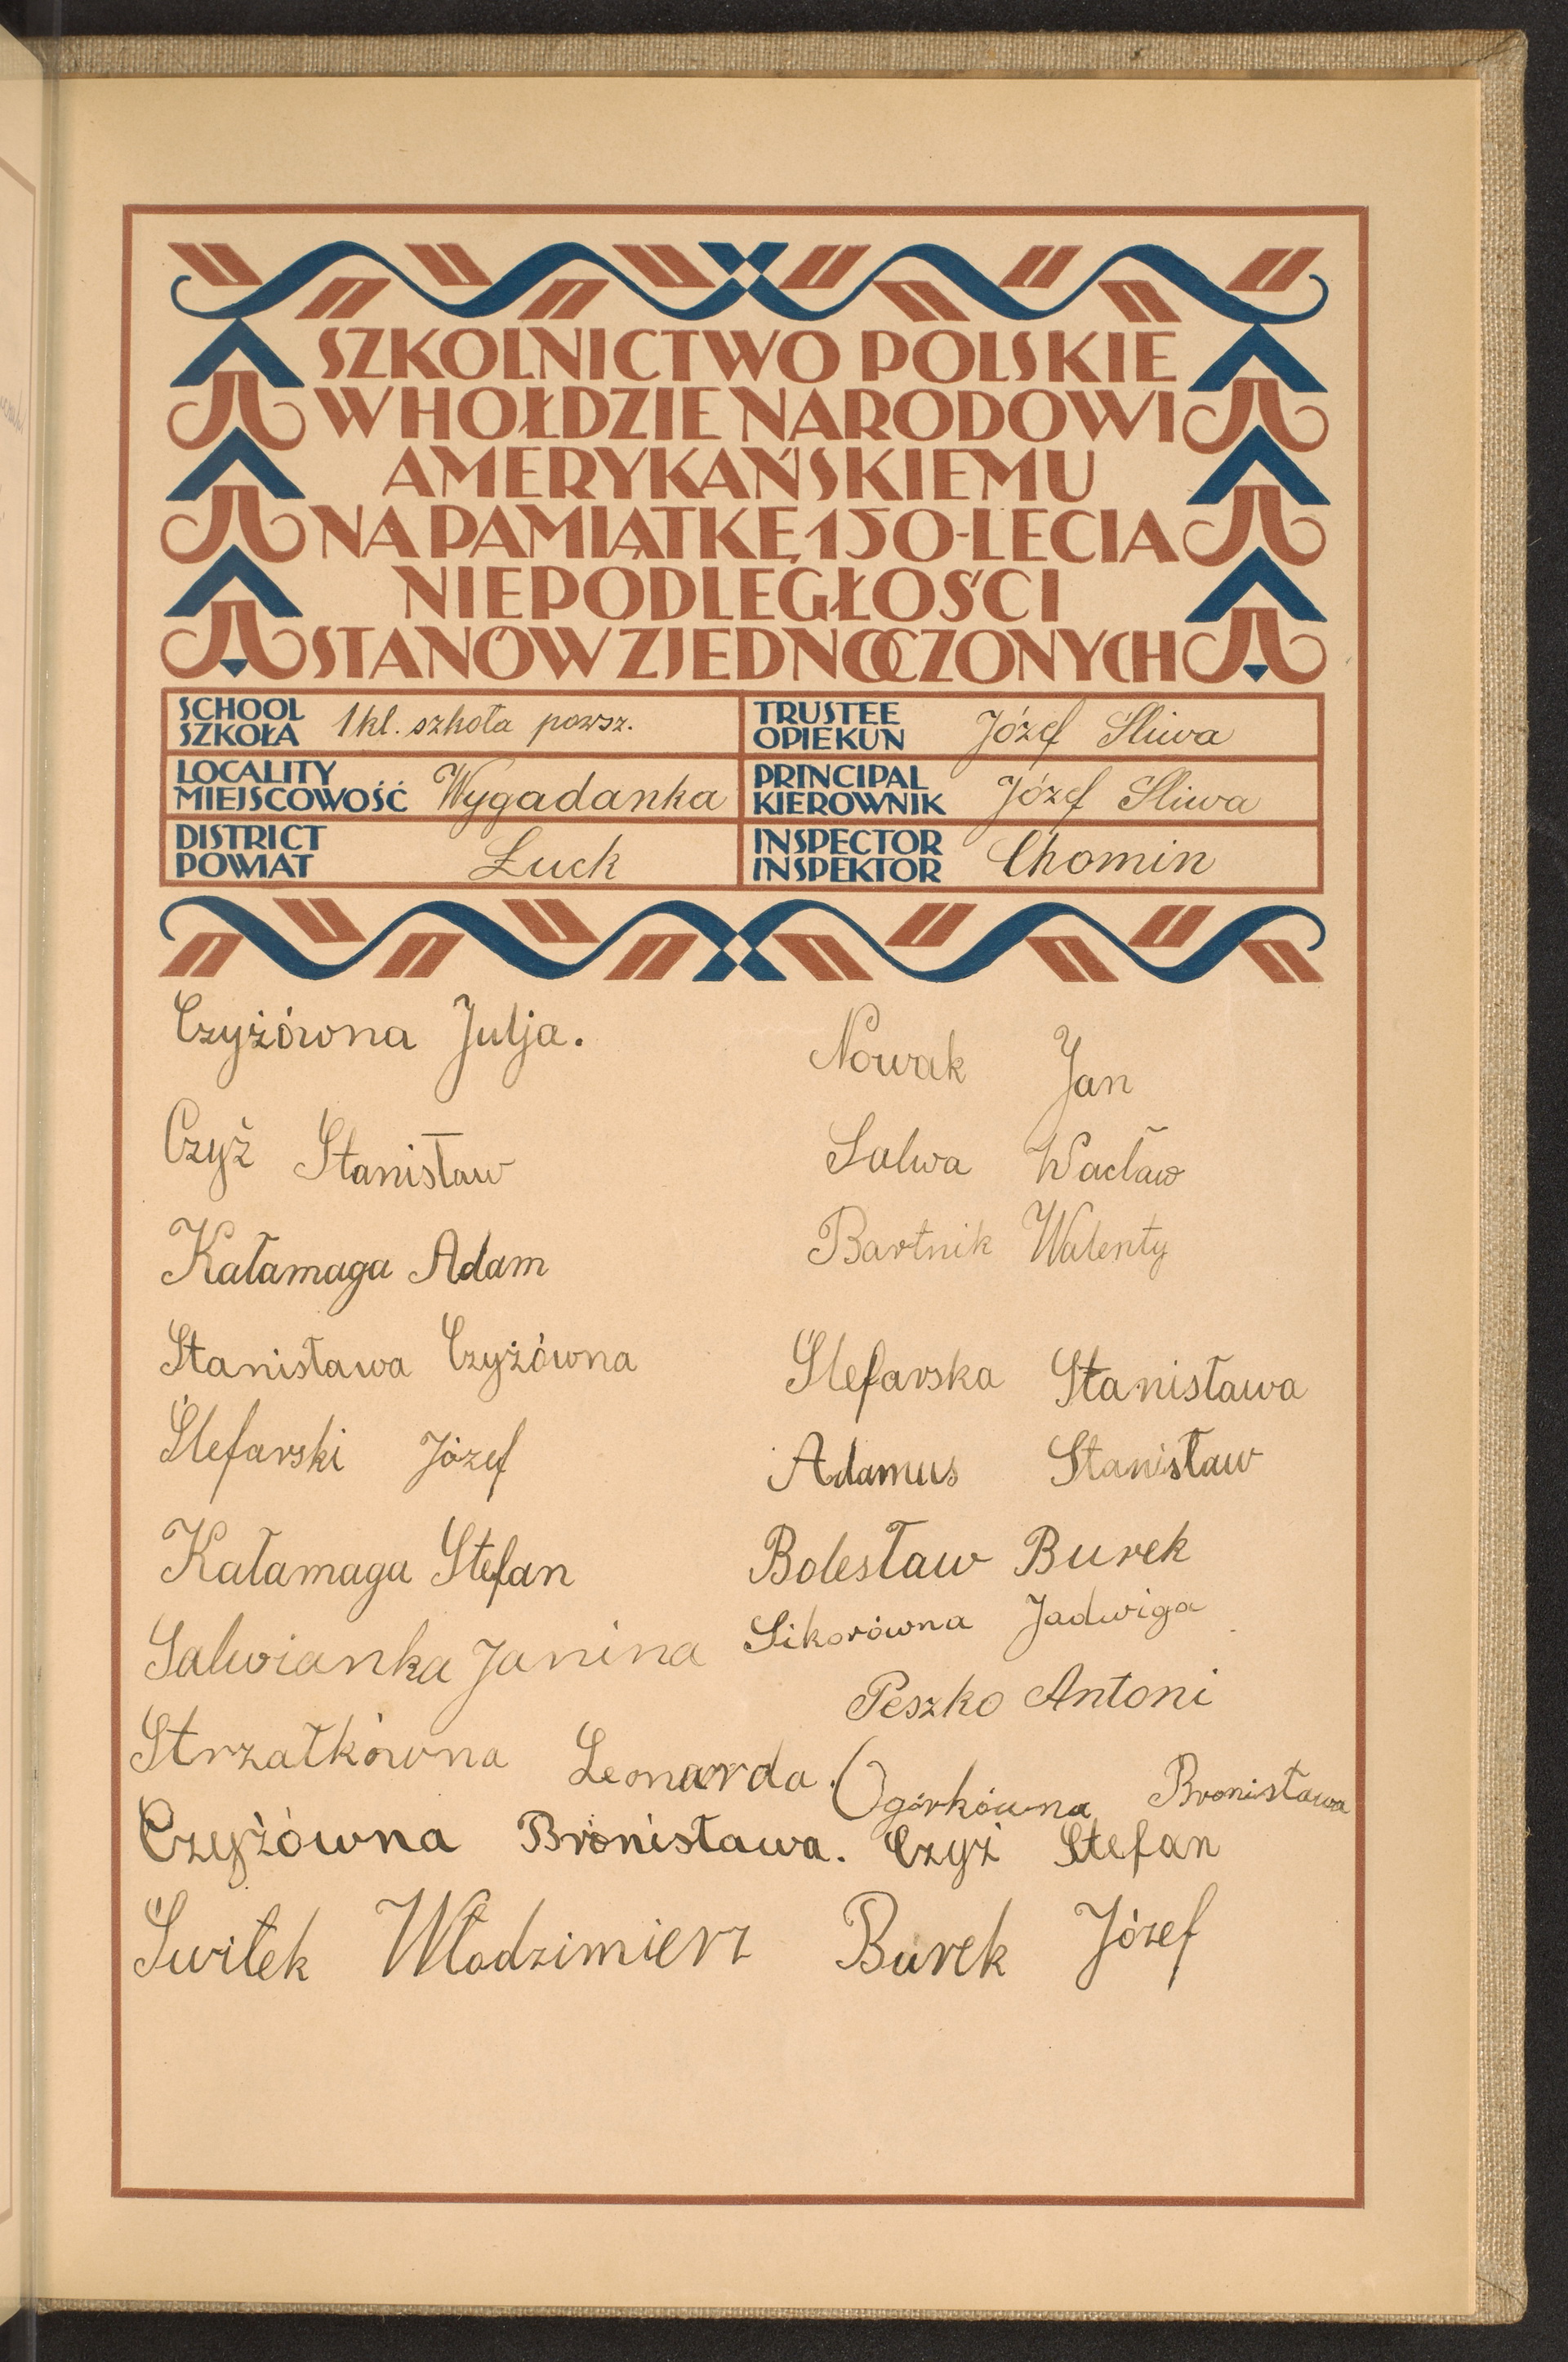 SZKOLNICTWO POLSKIE
W HOŁDZIE NARODOWI
AMERYKAŃSKIEMU
NA PAMIĄTKĘ 150-LECIA
NIEPODLEGŁOŚCI
STANÓW ZJEDNOCZONYCH
SCHOOL
SZKOŁA 1 kl. szkoła powsz.
TRUSTEE
OPIEKUN Józef Śliwa
LOCALITY
MIEJSCOWOŚĆ Wygadanka
PRINCIPAL
KIEROWNIK Józef Śliwa
DISTRICT
POWIAT Łuck
INSPECTOR
INSPEKTOR Chomin
Czyżówna Julja.
Czyż Stanisław
Kałamaga Adam
Stanisława Czyżówna
Ślefarski Józef
Kałamaga Stefan
Salwianka Janina
Strzałkówna Leonarda.
Czyżówna Bronisława.
Świtek Włodzimierz
Nowak Jan
Salwa Wacław
Bartnik Walenty
Ślefarska Stanisława
Adamus Stanisław
Bolesław Burek
Sikorówna Jadwiga
Peszko Antoni
Ogórkówna Bronisława
Czyż Stefan
Burek Józef